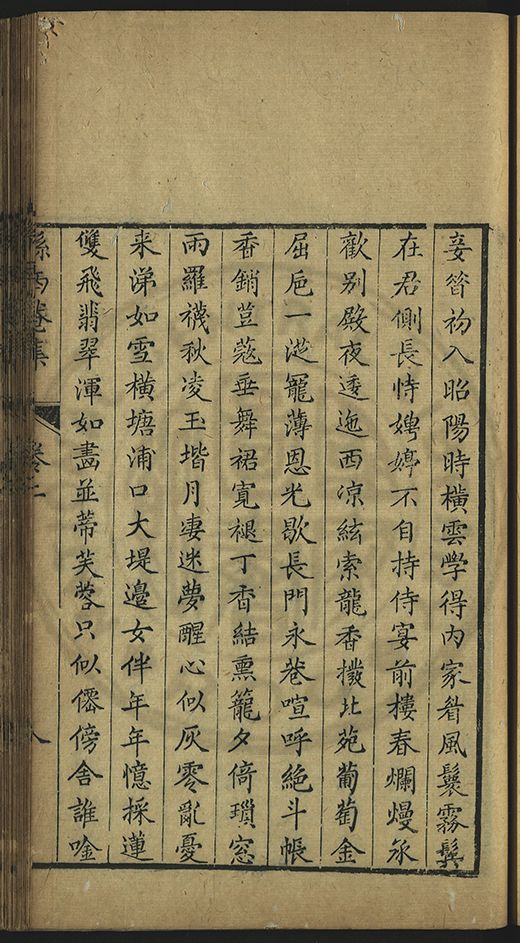 妾昔初入昭陽時橫雲學得內家眉風鬟霧鬢
在君側長恃娉婷不自持侍宴前樓春爛熳承
歡別殿夜逶迤西凉絃索龍香撥北苑葡萄金
屈巵一從寵薄恩光歇長門永巷喧呼絕斗帳
香銷荳蔻垂舞裙寬褪丁香結熏籠夕倚瑣窓
雨羅襪秋凌玉堦月凄迷夢醒心似灰零亂憂
来涕如雪橫塘浦口大堤邉女伴年年憶採蓮
雙飛翡翠渾如畵並蒂芙蓉只似僊傍舍誰唫
孫西菴集 卷二 八